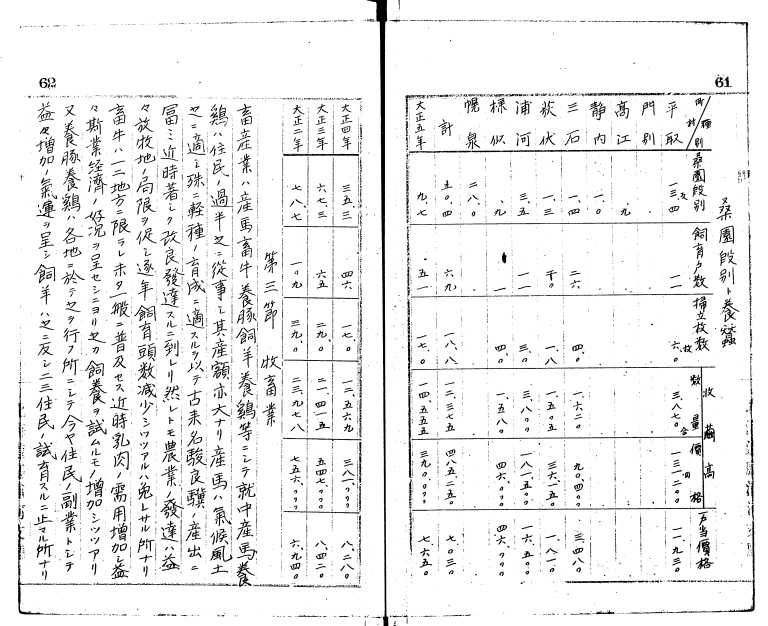 61
桑園段別ト養蚕
町村/種別
桑園段別
飼育戸数
掃立枚数
收繭高
数量
價格
一戸当價格
平取 一三、四 一一 六、〇 三、八七〇 一三一、二〇 一一、九三〇
門別
高江 、九
静内 一、〇
三石 一、四 二六 四、〇 一、六二〇 九〇、四〇 三、四八〇
荻伏 一、三 一、八 一、五〇五 三六、一五 一、八一〇
浦河 三、五 一一 三、〇 三、八〇〇 一六、五〇
様似 、九 一 四、〇 一、五八〇 四六、〇〇〇 四六、〇〇〇
幌泉 二八、〇
計 五〇、四 六九 一八、八 一二、三七五 四八五、二五〇 七、〇三〇
大正五年 九、七 五一 一七、〇 一四、五五五 三九〇、〇〇〇 七、六五〇
62
大正四年 三五、三 四六 一七、〇 一二、五六九 三八一、〇〇〇 八、二八〇
大正三年 六七、三 六五 二九、〇 二一、四一五 五四七、〇〇〇 八、四二〇
大正二年 七八、七 一〇九 三九、〇 二三、九七八 七五六、〇〇〇 六、九四〇
第三節 牧畜業
畜産業ハ産馬畜牛養豚飼羊養鶏等ニシテ就中産馬養
鶏ハ住民ノ過半之ニ從事シ其産額亦大ナリ産馬ハ氣候風土
之ニ適シ殊ニ軽種ノ育成ニ適スルヲ以テ古来名駿良驥ノ産出ニ
冨ミ近時著シク改良發達スルニ到レリ然レトモ農業ノ發達ハ益
々放牧地ノ局限ヲ促シ逐年飼育頭数減少シツツアルハ免レサル所ナリ
畜牛ハ一二地方ニ限ラレホタ一般ニ普及セス近時乳肉ノ需用増加シ益
々斯業経濟ノ好況ヲ呈セシニヨリ之カ飼養ヲ試ムルモノ増加シツツアリ
又養豚養鶏ハ各地ニ於テ之ヲ行フ所ニシテ今ヤ住民ノ副業トシテ
益々増加ノ氣運ヲ呈シ飼羊ハ之ニ反シ二三住民ノ試育スルニ止マル所ナリ